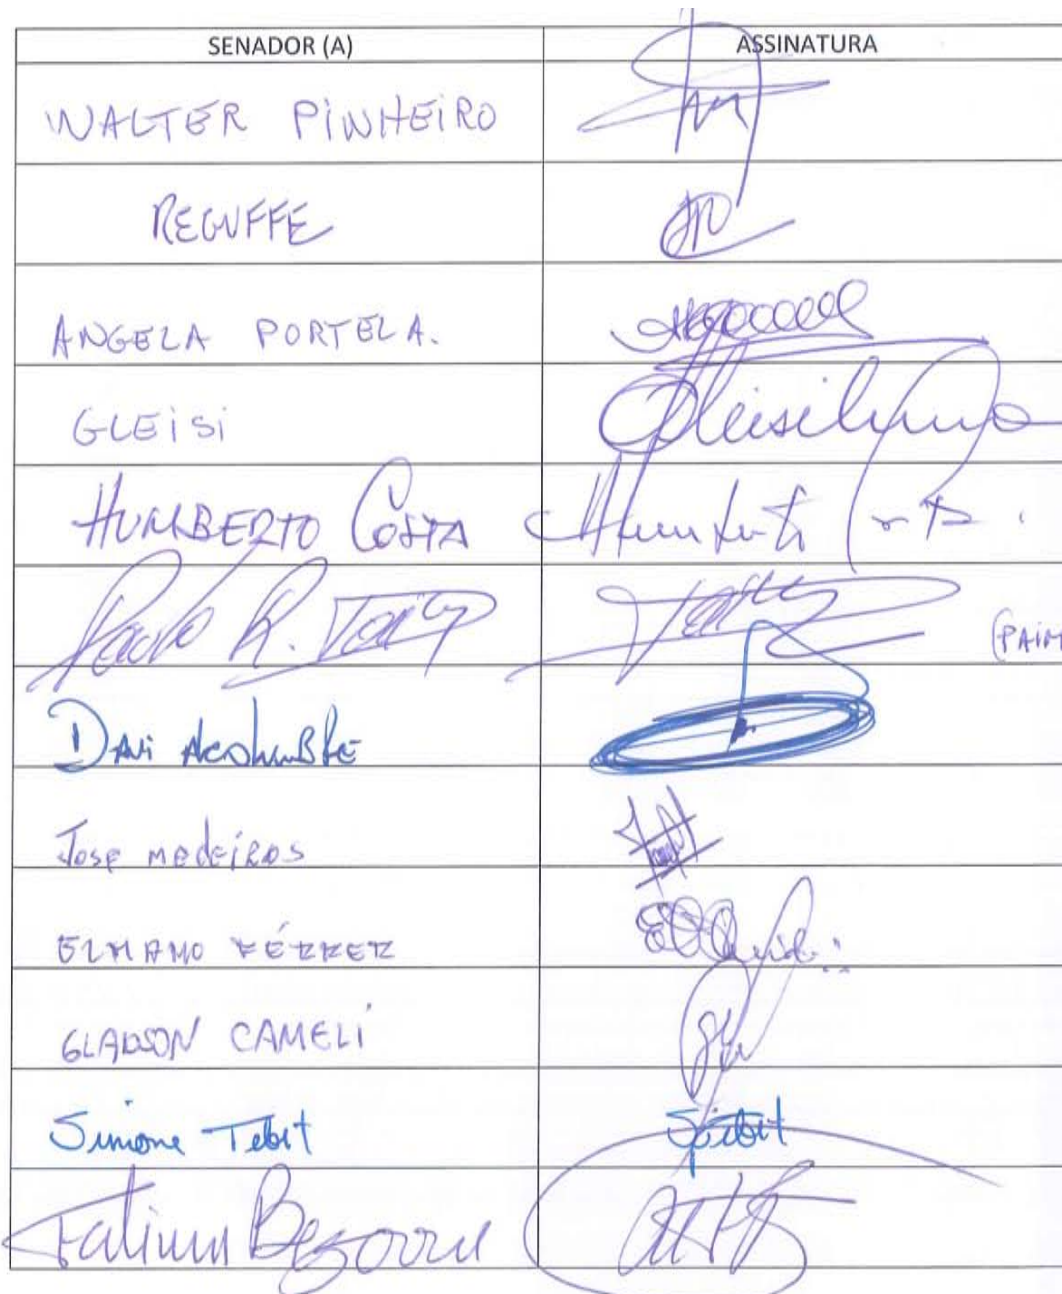 SENADOR (A) ASSINATURA
WALTER PINHEIRO
REGUFFE
ANGELA PORTELA.
GLEISI
HUMBERTO COSTA Humberto Costa
Paulo R. Paim
(PAIM
DAVI AlcolumBRE
José MEDEIROS
ELMANO FÉRRER
GLADSON CAMELI
Simone Tebet STebet
Fatima Bezerra